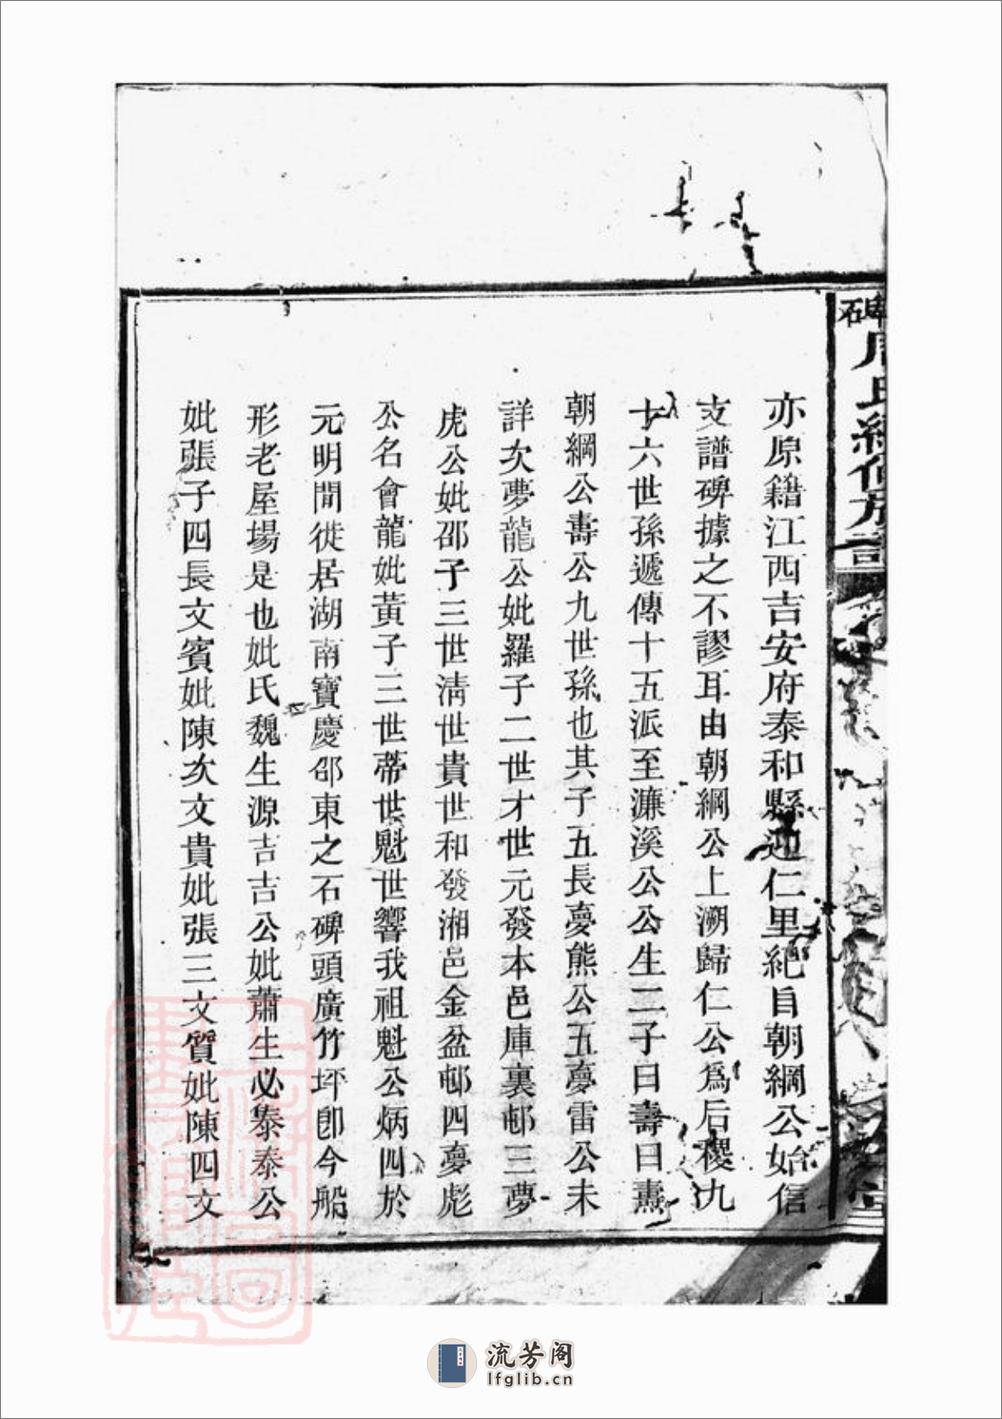 亦原籍江西吉安府泰和縣迎仁里紀自朝綱公始信
支譜碑據之不謬耳由朝綱公上溯歸仁公爲后稷九
十六世孫遞傳十五派至濂溪公公生二子曰壽曰燾
朝綱公壽公九世孫也其子五長夢熊公五夢雷公未
詳次夢龍公妣羅子二世才世元發本邑庫裏邨三夢
虎公妣邵子三世淸世貴世和發湘邑金盆邨四夢彪
公名會龍妣黃子三世蒂世魁世響我祖魁公炳四於
元明間徙居湖南寶慶邵東之石碑頭廣竹坪卽今船
形老屋場是也妣氏魏生源吉吉公妣蕭生必泰泰公
妣張子四長文賓妣陳次文貴妣張三文質妣陳四文
碑 周氏續修族譜
堂
流芳阁
lfglib.cn